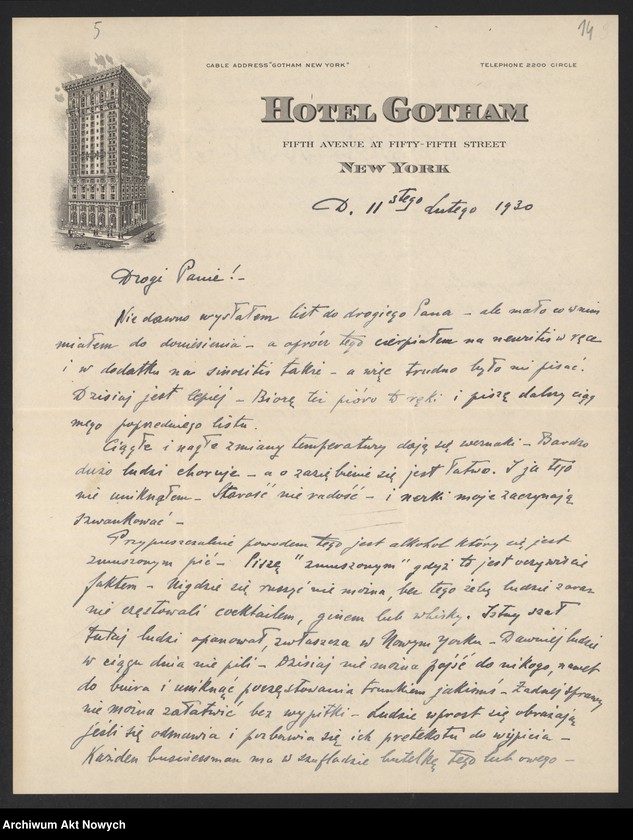 5
14
CABLE ADDRESS "GOTHAM NEW YORK"
TELEPHONE 2200 CIRCLE
HOTEL GOTHAM
FIFTH AVENUE AT FIFTY-FIFTH STREET
NEW YORK
D. 11 stego Lutego 1930
Drogi Panie! -
Nie dawno wysłałem list do drogiego Pana - ale mało co w nim
miałem do doniesienia - a oprócz tego cierpiałem na neuritis w ręce
i w dodatku na sinositis także - a więc trudno było mi pisać.
Dzisiaj jest lepiej - Biorę też pióro do ręki i piszę dalszy ciąg
mego poprzedniego listu.
Ciągłe i nagłe zmiany temperatury dają się we znaki - Bardzo
dużo ludzi choruje - a o zaziębienie się jest łatwo. I ja tego
nie uniknąłem - Starość nie radość - i nerki moje zaczynają
szwankować -
Przypuszczalnie powodem tego jest alkohol który się jest
zmuszonym pić - Piszę "zmuszonym" gdyż to jest oczywiście
faktem - Nigdzie się ruszyć nie można, bez tego żeby ludzie zaraz
nie częstowali cocktailem, ginem lub whisky. Istny szał
tutaj ludzi opanował, zwłaszcza w Nowym Yorku - Dawniej ludzie
w ciągu dnia nie pili - Dzisiaj nie można pójść do nikogo, nawet
do biura i uniknąć poczęstowania trunkiem jakimś - Żadnej sprawy
nie można załatwić bez wypitki - Ludzie wprost się obrażają
jeśli się odmawia i pozbawia się ich pretekstu do wypicia -
Każden businessman ma w szufladzie butelkę tego lub owego -
Archiwum Akt Nowych